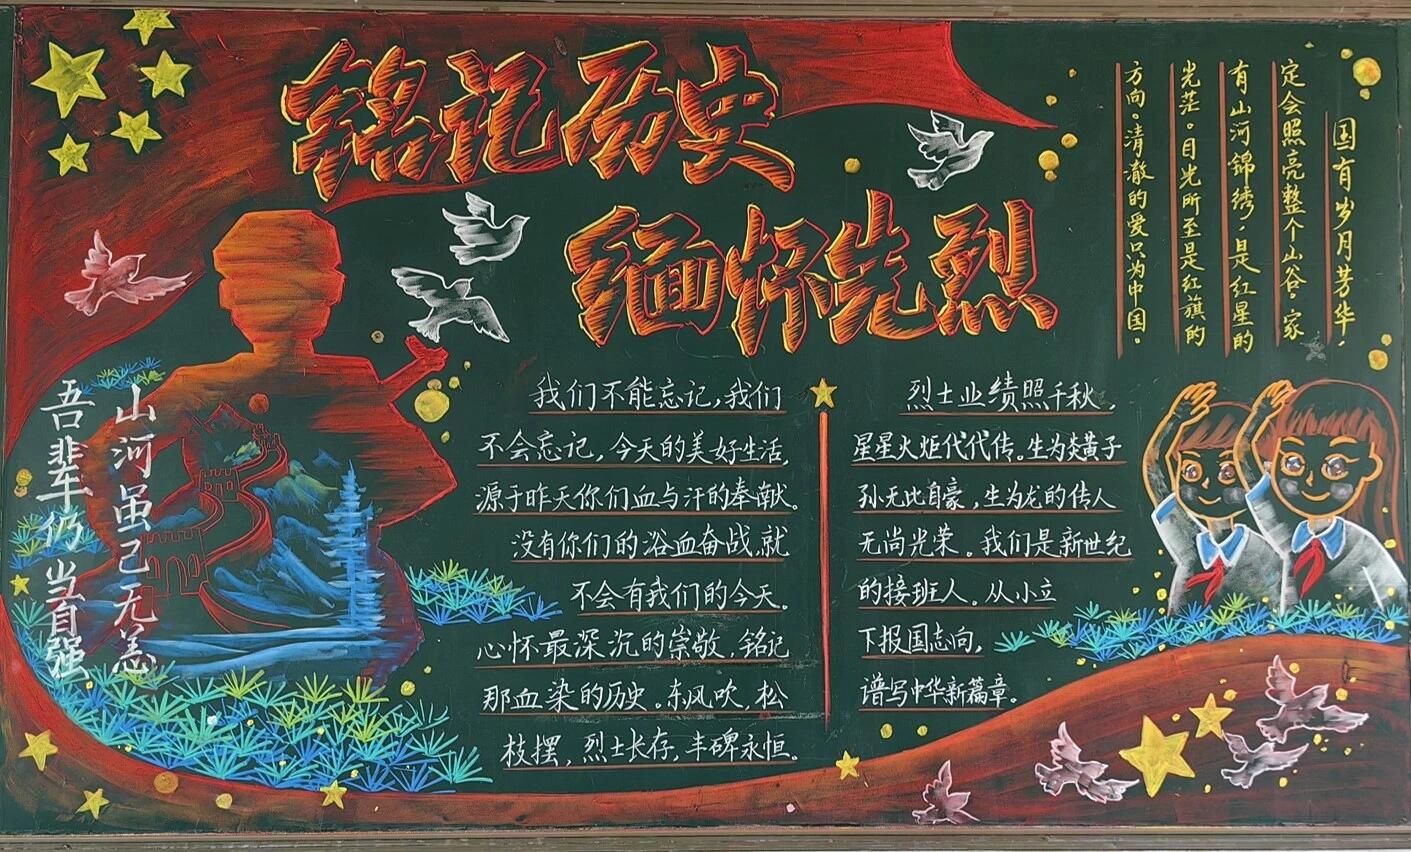 铭记历史
缅怀先烈
国有岁月芳华，
定会照亮整个山谷。家
有山河锦绣，是红星的
光茫。目光所至是红旗的
方向。清澈的爱只为中国。
山河虽已无恙
吾辈仍当自强
我们不能忘记，我们
不会忘记，今天的美好生活，
源于昨天你们血与汗的奉献。
没有你们的浴血奋战，就
不会有我们的今天。
心怀最深沉的崇敬，铭记
那血染的历史。东风吹，松
枝摆，烈士长存，丰碑永恒。
烈士业绩照千秋，
星星火炬代代传。生为炎黄子
孙无比自豪，生为龙的传人
无尚光荣。我们是新世纪
的接班人。从小立
下报国志向，
谱写中华新篇章。